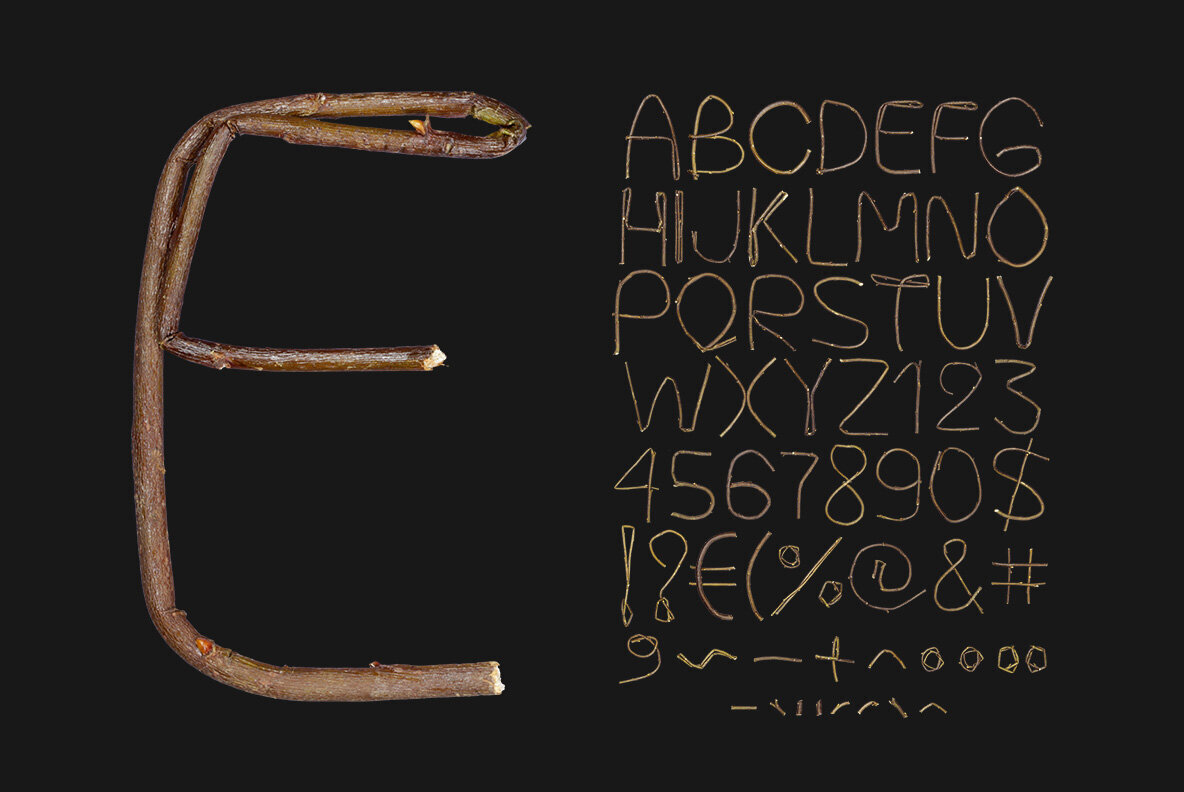 E
ABCDEFG
HIJKLMNO
PQRSTUV
WXYZ123
4567890$
!?€(%@&#